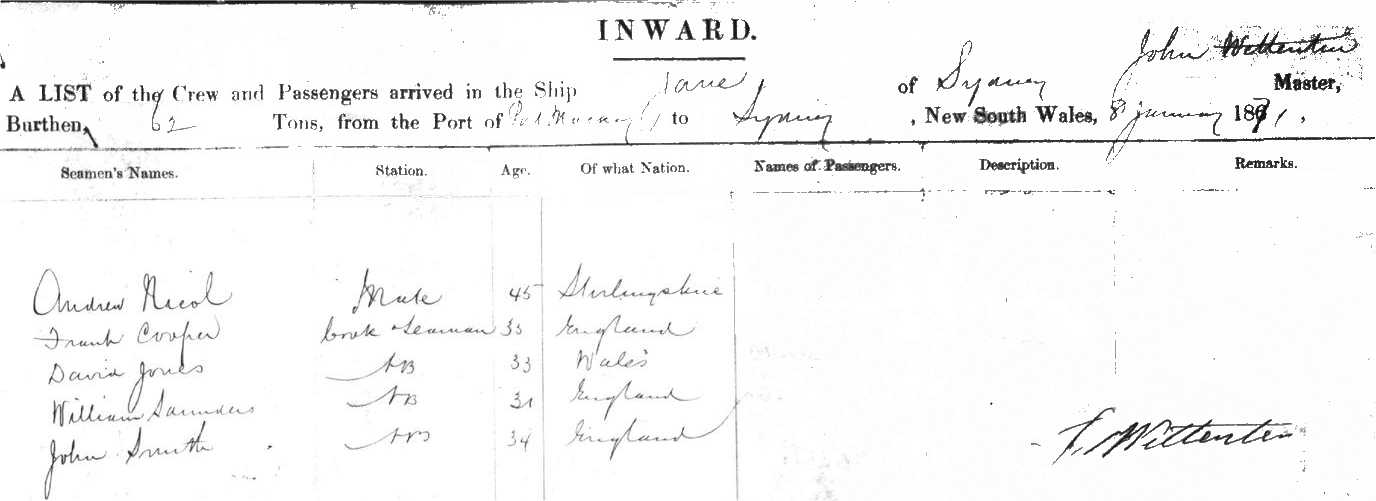 INWARD.
John Wittenten
A LIST of the Crew and Passengers arrived in the Ship Jane of Sydney Master,
Burthen, 62 Tons, from the Port of to Sydney, New South Wales, 8 January 1871,
Seamen's Names. Station. Age. Of what Nation. Names of Passengers. Description. Remarks.
Andrew Nicol Mate 45 Stirlingshire
Frank Cooper Cook & Seaman 35 England
David Jones AB 33 Wales
William Saunders AB 31 England
John Smith AB 34 England
J. Wittenten